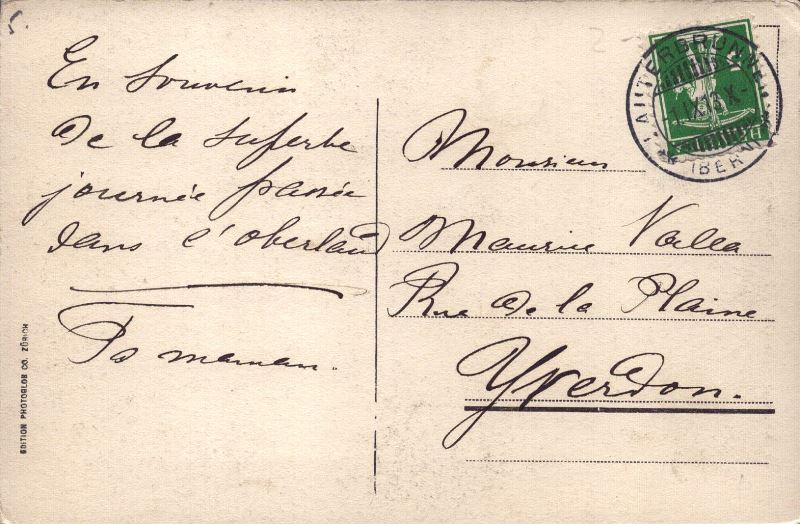 5.
En souvenir
de la superbe
journée passée
dans l'Oberland
Ta maman.
EDITION PHOTOGLOB CO. ZÜRICH
LAUTERBRUNNEN
(BERN)
Monsieur
Maurice Valla
Rue de la Plaine
Yverdon.